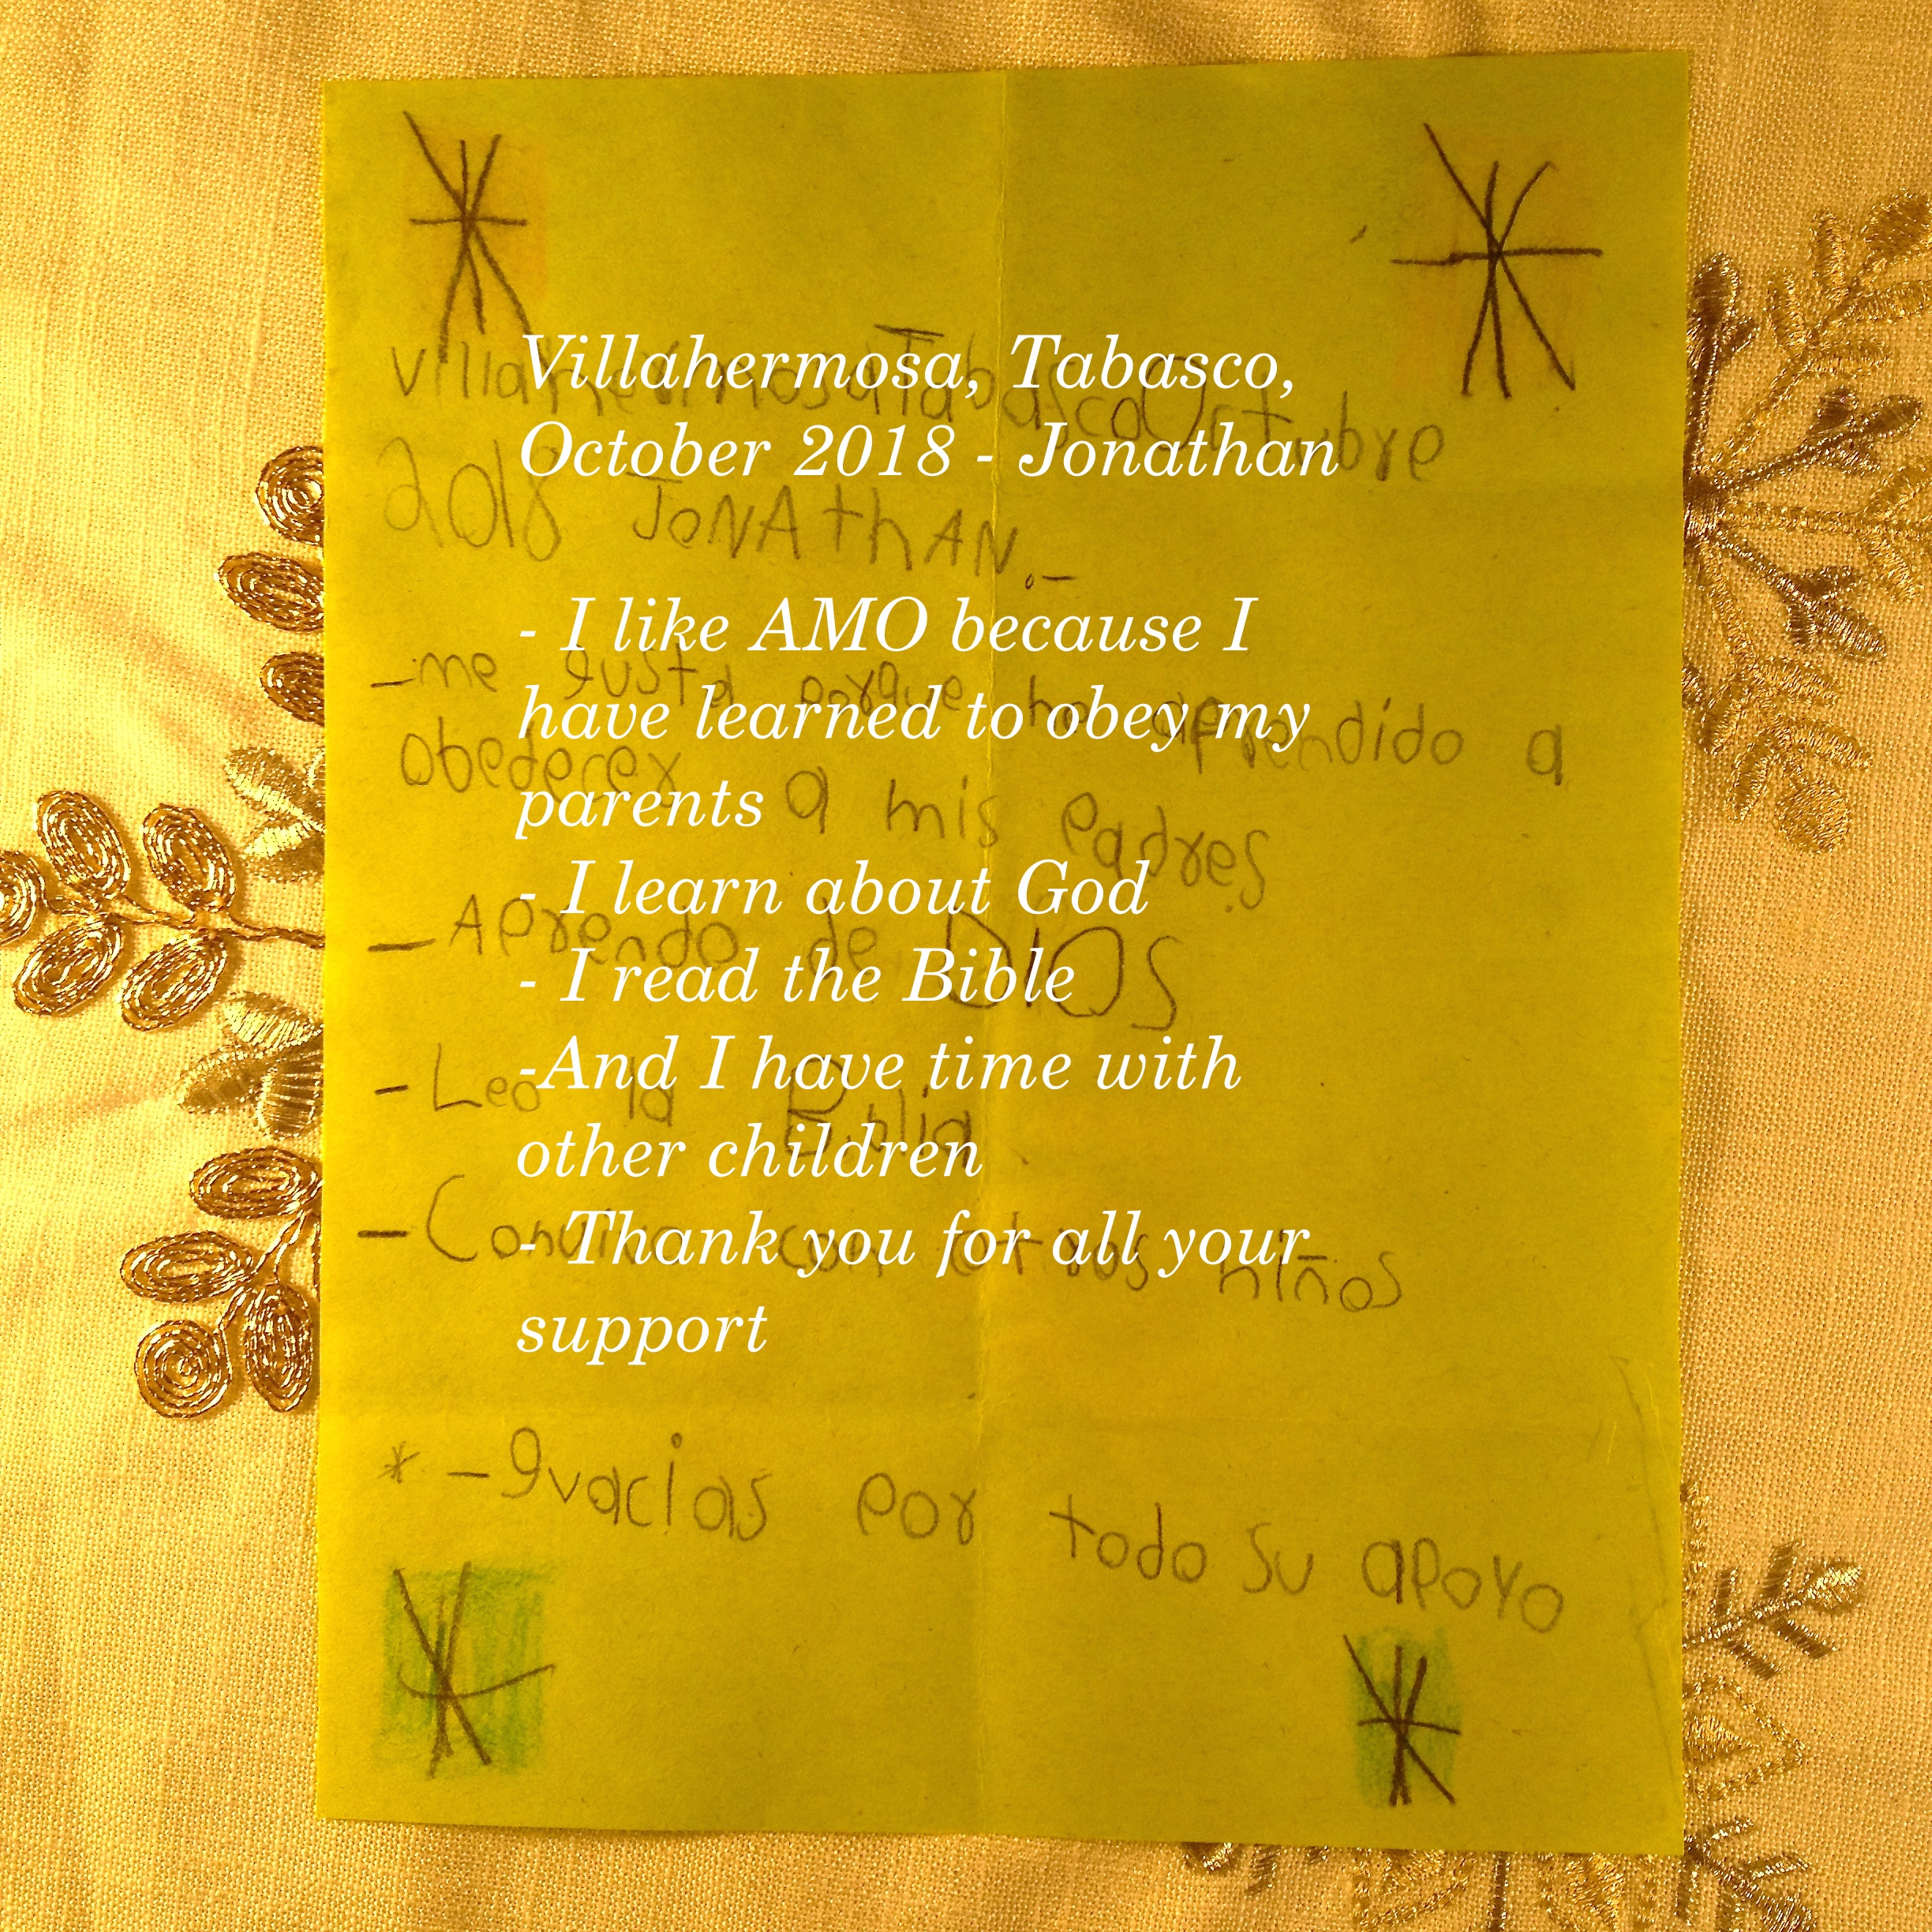 Villahermosa, Tabasco,
October 2018 - Jonathan
- I like AMO because I
have learned to obey my
parents
- I learn about God
- I read the Bible
-And I have time with
other children
- Thank you for all your
support
Villahermosa Tabasco Octubre
2018 JONAthAN.-
-me gusta porque he aprendido a
obederex a mis padres
- Aprendo de DIOS
- Leo la Biblia
- Convivo con otros niños
* - gracias por todo su apoyo